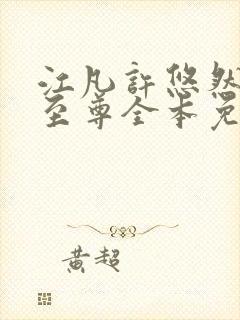 江凡許悠然
至尊全本免
黃超